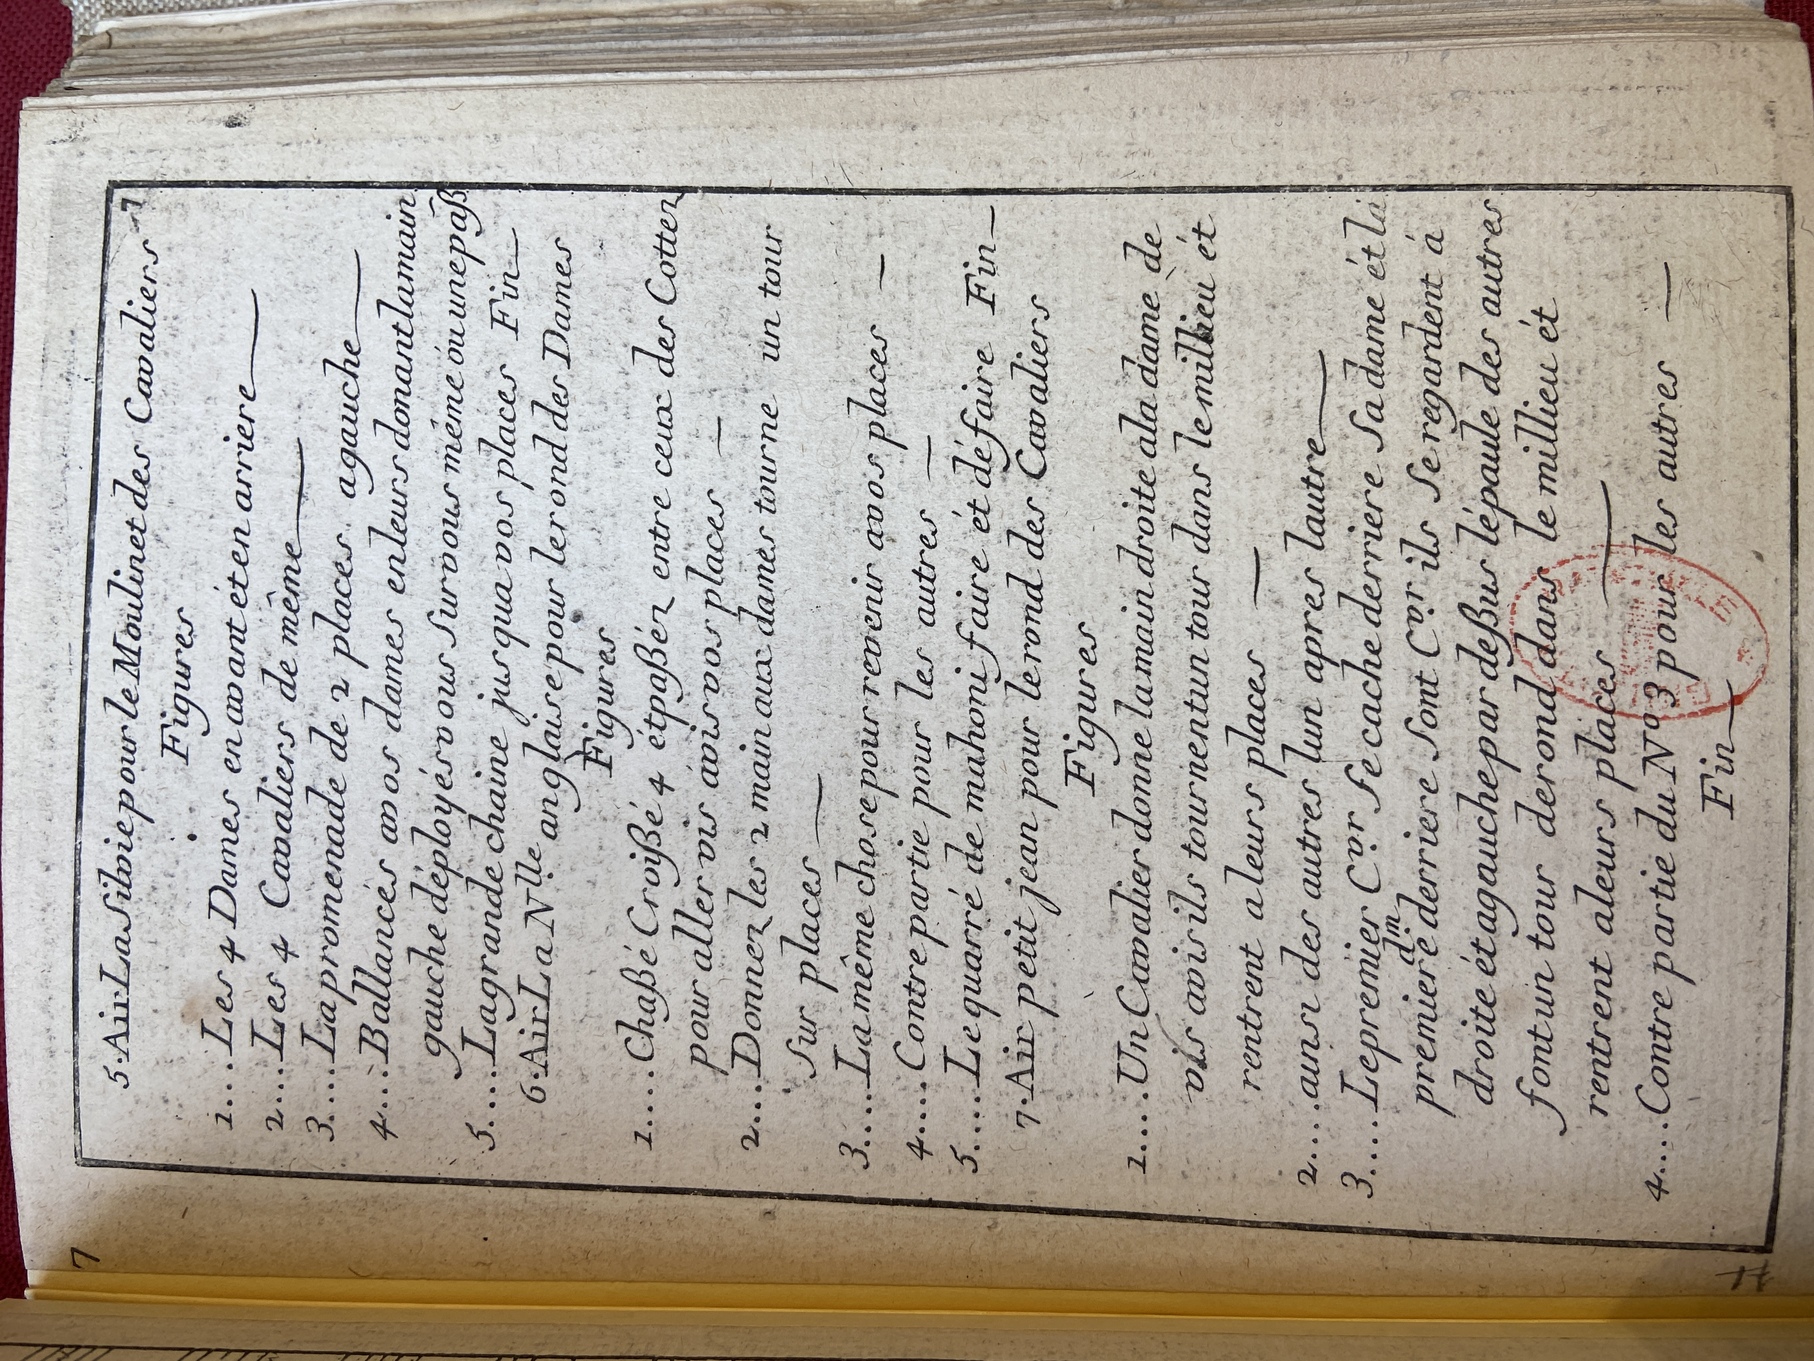 7
7
5. Air La Siloie pour le Moulinet des Cavaliers
Figures
1.... Les 4 Dames en avant ét en arriere
2.... Les 4 Cavaliers de même
3.... La promenade de 2 places. a gauche
4.... Ballancés a vos dames en leurs donant la main
gauche déployés vous sur vous méme óu un epaß
5.... La grande chaine jusqu a vos places Fin
6. Air La Nlle anglaise pour le rond des Dames
Figures
1.... Chaßé Croißé 4 ét paßéz entre ceux des Cottez
pour aller vis avis vos places
2.... Donnez les 2 main aux dames tourne un tour
sur places
3.... La même chose pour revenir a vos places
4.... Contre partie pour les autres
5.... Le quarré de mahoni faire ét défaire Fin
7. Air petit jean pour le rond des Cavaliers
Figures
1.... Un Cavalier donne la main droite a la dame de
vis avis ils tournent un tour dans le millieu ét
rentrent a leurs places
2.... ainsi des autres lun apres lautre
3.... Le premier Cer se cache derriere Sa dame ét la
premiere dm derriere Sont Cer ils Se regardent á
droite ét a gauche par deßus lépaule des autres
font un tour de rond dans le millieu ét
rentrent a leurs places
4.... Contre partie du No 3 pour les autres
Fin